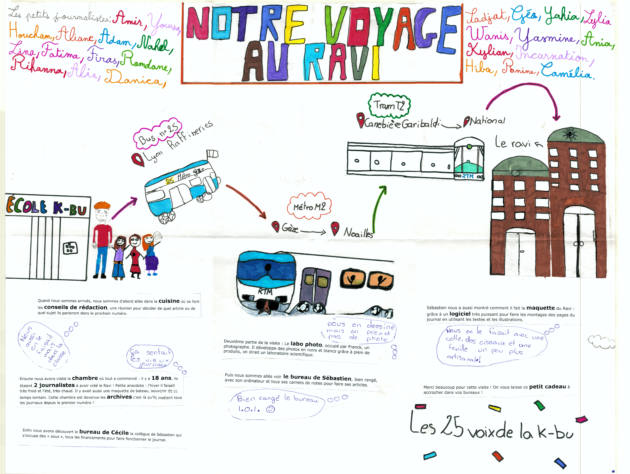 Les petits journalistes: Amir, Youness,
Houcham, Aliane, Adam, Nahel,
Lina, Fatima, Firas, Ramdane,
Rihanna, Alia, Danica,
NOTRE VOYAGE
AU RAVI
Ladjat, Géo, Yahia, Lylia
Wanis, Yasmine, Ania,
Kylian, Incarnation,
Hiba, Camélia.
Bus n°25
Lyon
Raffineries
Tram T2
Canebière Garibaldi
National
Le ravi
Métro M2
Gèze
Noailles
ÉCOLE K-BU
RTM
RTM
Quand nous sommes arrivés, nous sommes d'abord allés dans la cuisine où se font
les conseils de rédaction, une réunion pour décider de quel article ou de
quel sujet ils parleront dans le prochain numéro.
ça sentait
Ensuite nous avons visité la chambre où tout a commencé : il y a 18 ans, ils
étaient 2 journalistes à avoir créé le Ravi ! Petite anecdote : l'hiver il faisait
très froid et l'été, très chaud. Il y avait aussi une maquette de bateau,
temps lointain. Cette chambre est devenue les archives c'est là qu'ils mettent tous
les journaux depuis le premier numéro !
Enfin nous avons découvert le bureau de Cécile la collègue de Sébastien qui
s'occupe des « sous », tous les financements pour faire fonctionner le journal.
nous on dessine
mais on prend
pas de photo
Deuxième partie de la visite : Le labo photo, occupé par Franck, un
photographe. Il développe des photos en noirs et blancs grâce à plein de
produits, on dirait un laboratoire scientifique.
Puis nous sommes allés voir le bureau de Sébastien, bien rangé,
avec son ordinateur et tous ses carnets de notes pour faire ses articles.
Bien rangé le bureau
Sébastien nous a aussi montré comment il fait la maquette du Ravi :
grâce à un logiciel très puissant pour faire les montages des pages du
journal en utilisant les textes et les illustrations.
Nous on le faisait avec une
colle des ciseaux et une
feuille un peu plus
artisanal
Merci beaucoup pour cette visite ! On vous laisse ce petit cadeau à
accrocher dans vos bureaux !
Les 25 voix de la k-bu